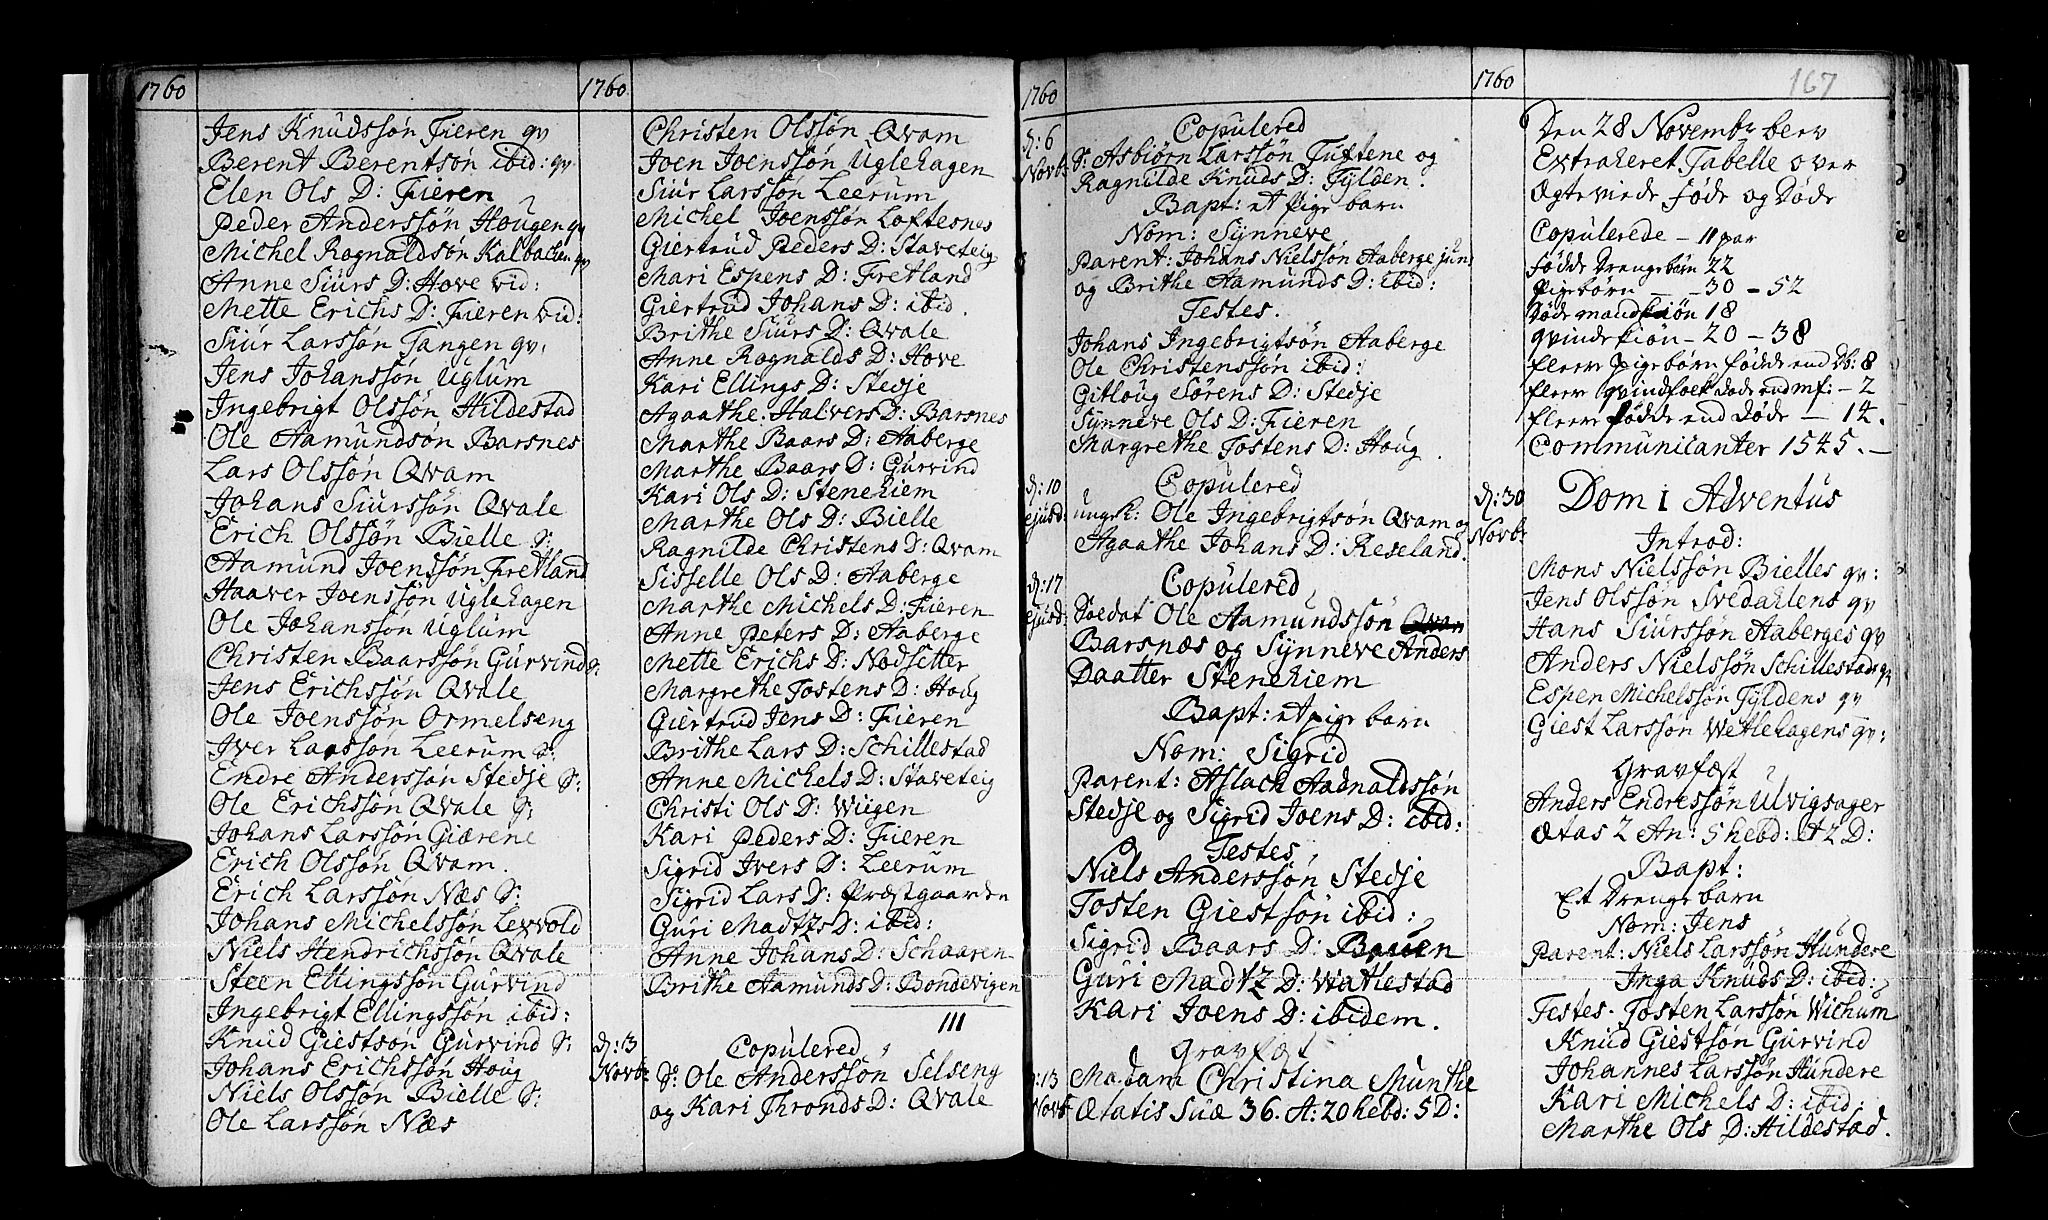 1760
Jens Knudssøn Fieren qv
Berent Berentsøn ibid: qv
Elen Ols D: Fieren
Peder Anderssøn Hougen qv
Michel Ragnaldsøn Kalbachen qv
Anne Siurs D: Hove vid:
Mette Erichs D: Fieren vid:
Siur Larssøn Tangen qv:
Jens Johanssøn Uglum
Ingebrigt Olssøn Hildestad
Ole Aamundsøn Barsnes
Lars Olssøn Qvam
Johans Siurssøn Qvale
Erich Olssøn Bielle S:
Aamund Joenssøn Fretland
Haaver Joenssøn Uglehagen
Ole Johanssøn Uglum
Christen Baarssøn Gurvind S:
Jens Erichssøn Qvale
Ole Joenssøn Ormelseng
Iver Larssøn Leerum S:
Endre Anderssøn Stedje S:
Ole Erichssøn Qvale S:
Johans Larssøn Giærene
Erich Olssøn Qvam.
Erich Larssøn Næs S:
Johans Michelssøn Lervold
Niels Hendrichssøn Qvale
Steen Ellingssøn Gurvind
Ingebrigt Ellingssøn ibid:
Knud Giestsøn Gurvind S:
Johans Erichssøn Houg
Niels Olssøn Bielle S:
Ole Larssøn Næs
1760
Christen Olssøn Qvam
Joen Joenssøn Uglehagen
Siur Larssøn Leerum
Michel Joenssøn Loftesnes
Giertrud Peders D: Staveteig
Mari Espens D: Fretland
Giertrud Johans D: ibid.
Brithe Siurs D: Qvale
Anne Ragnalds D: Hove
Kari Ellings D: Stedje
Agaathe Halvers D: Barsnes
Marthe Baars D: Aaberge
Marthe Baars D: Gurvind
Kari Ols D: Stenehiem
Marthe Ols D: Bielle
Ragnilde Christens D: Qvam
Sisselle Ols D: Aaberge
Marthe Michels D: Fieren
Anne Peters D: Aaberge
Mette Erichs D: Nodsetter
Margrethe Tostens D: Houg
Giertrud Jens D: Fieren
Brithe Lars D: Schillestad
Anne Michels D: Staveteig
Christi Ols D: Wiigen
Kari Peders D: Fieren
Sigrid Ivers D: Leerum
Sigrid Lars D: Præstgaarden
Guri Madtzs D: ibid:
Anne Johans D: Schaaren
Brithe Aamunds D: Bondevigen
111
d: 13 Novbr
Copulered
S: Ole Anderssøn Selseng
og Kari Thronds D: Qvale
1760
d: 6 Novbr
Copulered
S: Asbiørn Larssøn Tuftene og
Ragnilde Knuds D: Fylden.
Bapt: et Pige barn
Nom: Synneve
Parent: Johans Nielssøn Aaberge jun:
og Brithe Aamunds D: ibid:
Testes.
Johans Ingebrigtsøn Aaberge
Ole Christenssøn ibid:
Gitloug Sørens D: Stedje
Synneve Ols D: Fieren
Margrethe Tostens D: Houg.
d: 10 ejusd:
Copulered
ungk: Ole Ingebrigtsøn Qvam og
Agaathe Johans D: Reseland.
d: 17 ejusd:
Copulered
Soldat Ole Aamundssøn Qvam
Barsnæs og Synneve Anders
Daatter Stenehiem
Bapt: et pige barn
Nom: Sigrid
Parent: Aslach Aadnaldssøn
Stedje og Sigrid Joens D: ibid:
Testes
Niels Anderssøn Stedje
Tosten Giestsøn ibid:
Sigrid Baars D: Bauen
Guri Madtz D: Wallestad
Kari Joens D: ibidem.
Gravfæst
d: 13 Novbr
Madam Christina Munthe
Ætatis Suæ 36. A: 20 hebd: 5 D:
1760
167
Den 28 Novembr blev
Extraheret Tabelle over
Ægteviede Fødde og Døde
Copulerede - 11 par
Fødde Drengebørn 22
Pigebørn - - 30 - 52
Døde mandkiøn 18
qvindekiøn - 20 - 38
flere Pigebørn fødde end Db: 8
flere qvindfolk døde end mf: - 2
flere fødde end døde - 14.
Communicanter 1545. -
d: 30 Novbr
Dom 1 Adventus
Introd:
Mons Nielssøn Bielles qv:
Jens Olssøn Svedahlens qv
Hans Siurssøn Aaberges qv
Anders Nielssøn Schillestads qv
Espen Michelssøn Fyldens qv
Giest Larssøn Wetlehagens qv:
Gravfæst
Anders Endressøn Ulvigsager
Ætas 2 An: 5 hebd: et 2 D:
Bapt:
Et Drenge barn
Nom: Jens
Parent: Niels Larssøn Hundere
Inga Knuds D: ibid:
Testes. Tosten Larssøn Wichum
Knud Giestsøn Gurvind
Johannes Larssøn Hundere
Kari Michels D: ibid:
Marthe Ols D: Hildestad.